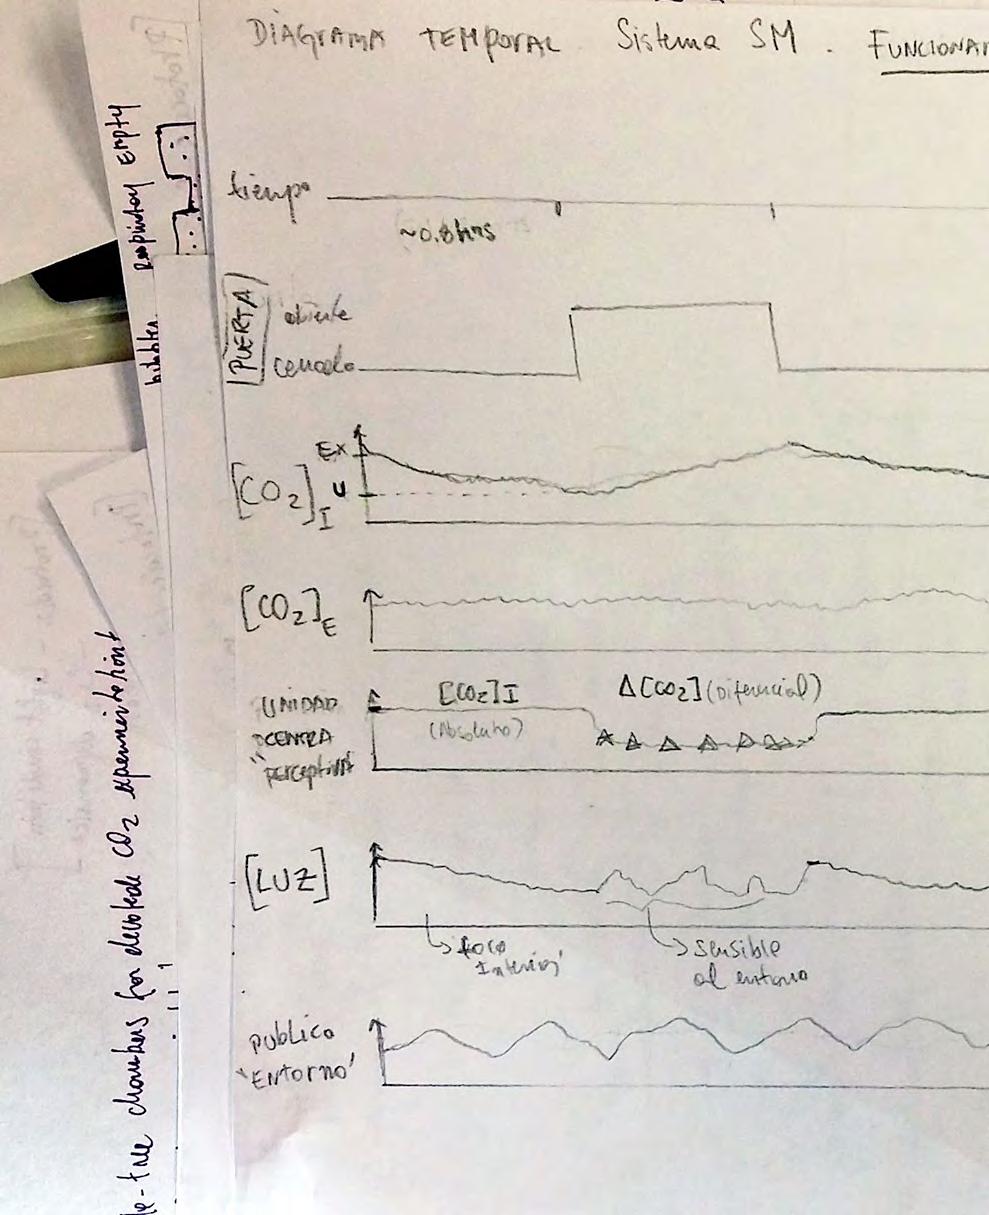 DIAGRAMA TEMPORAL Sistema SM. FUNCIONAM
tiempo
~0.8 hrs
PUERTA
abierta
cerrada
Ex
[CO2]I
U
[CO2]E
UNIDAD
CENTRA
"perceptiva"
[CO2]I
(Absoluto)
Δ[CO2] (Diferencial)
[LUZ]
foco
Interior
sensible
al entorno
PUBLICO
'ENTORNO'
respiratory EMPTY
chambers for CO2